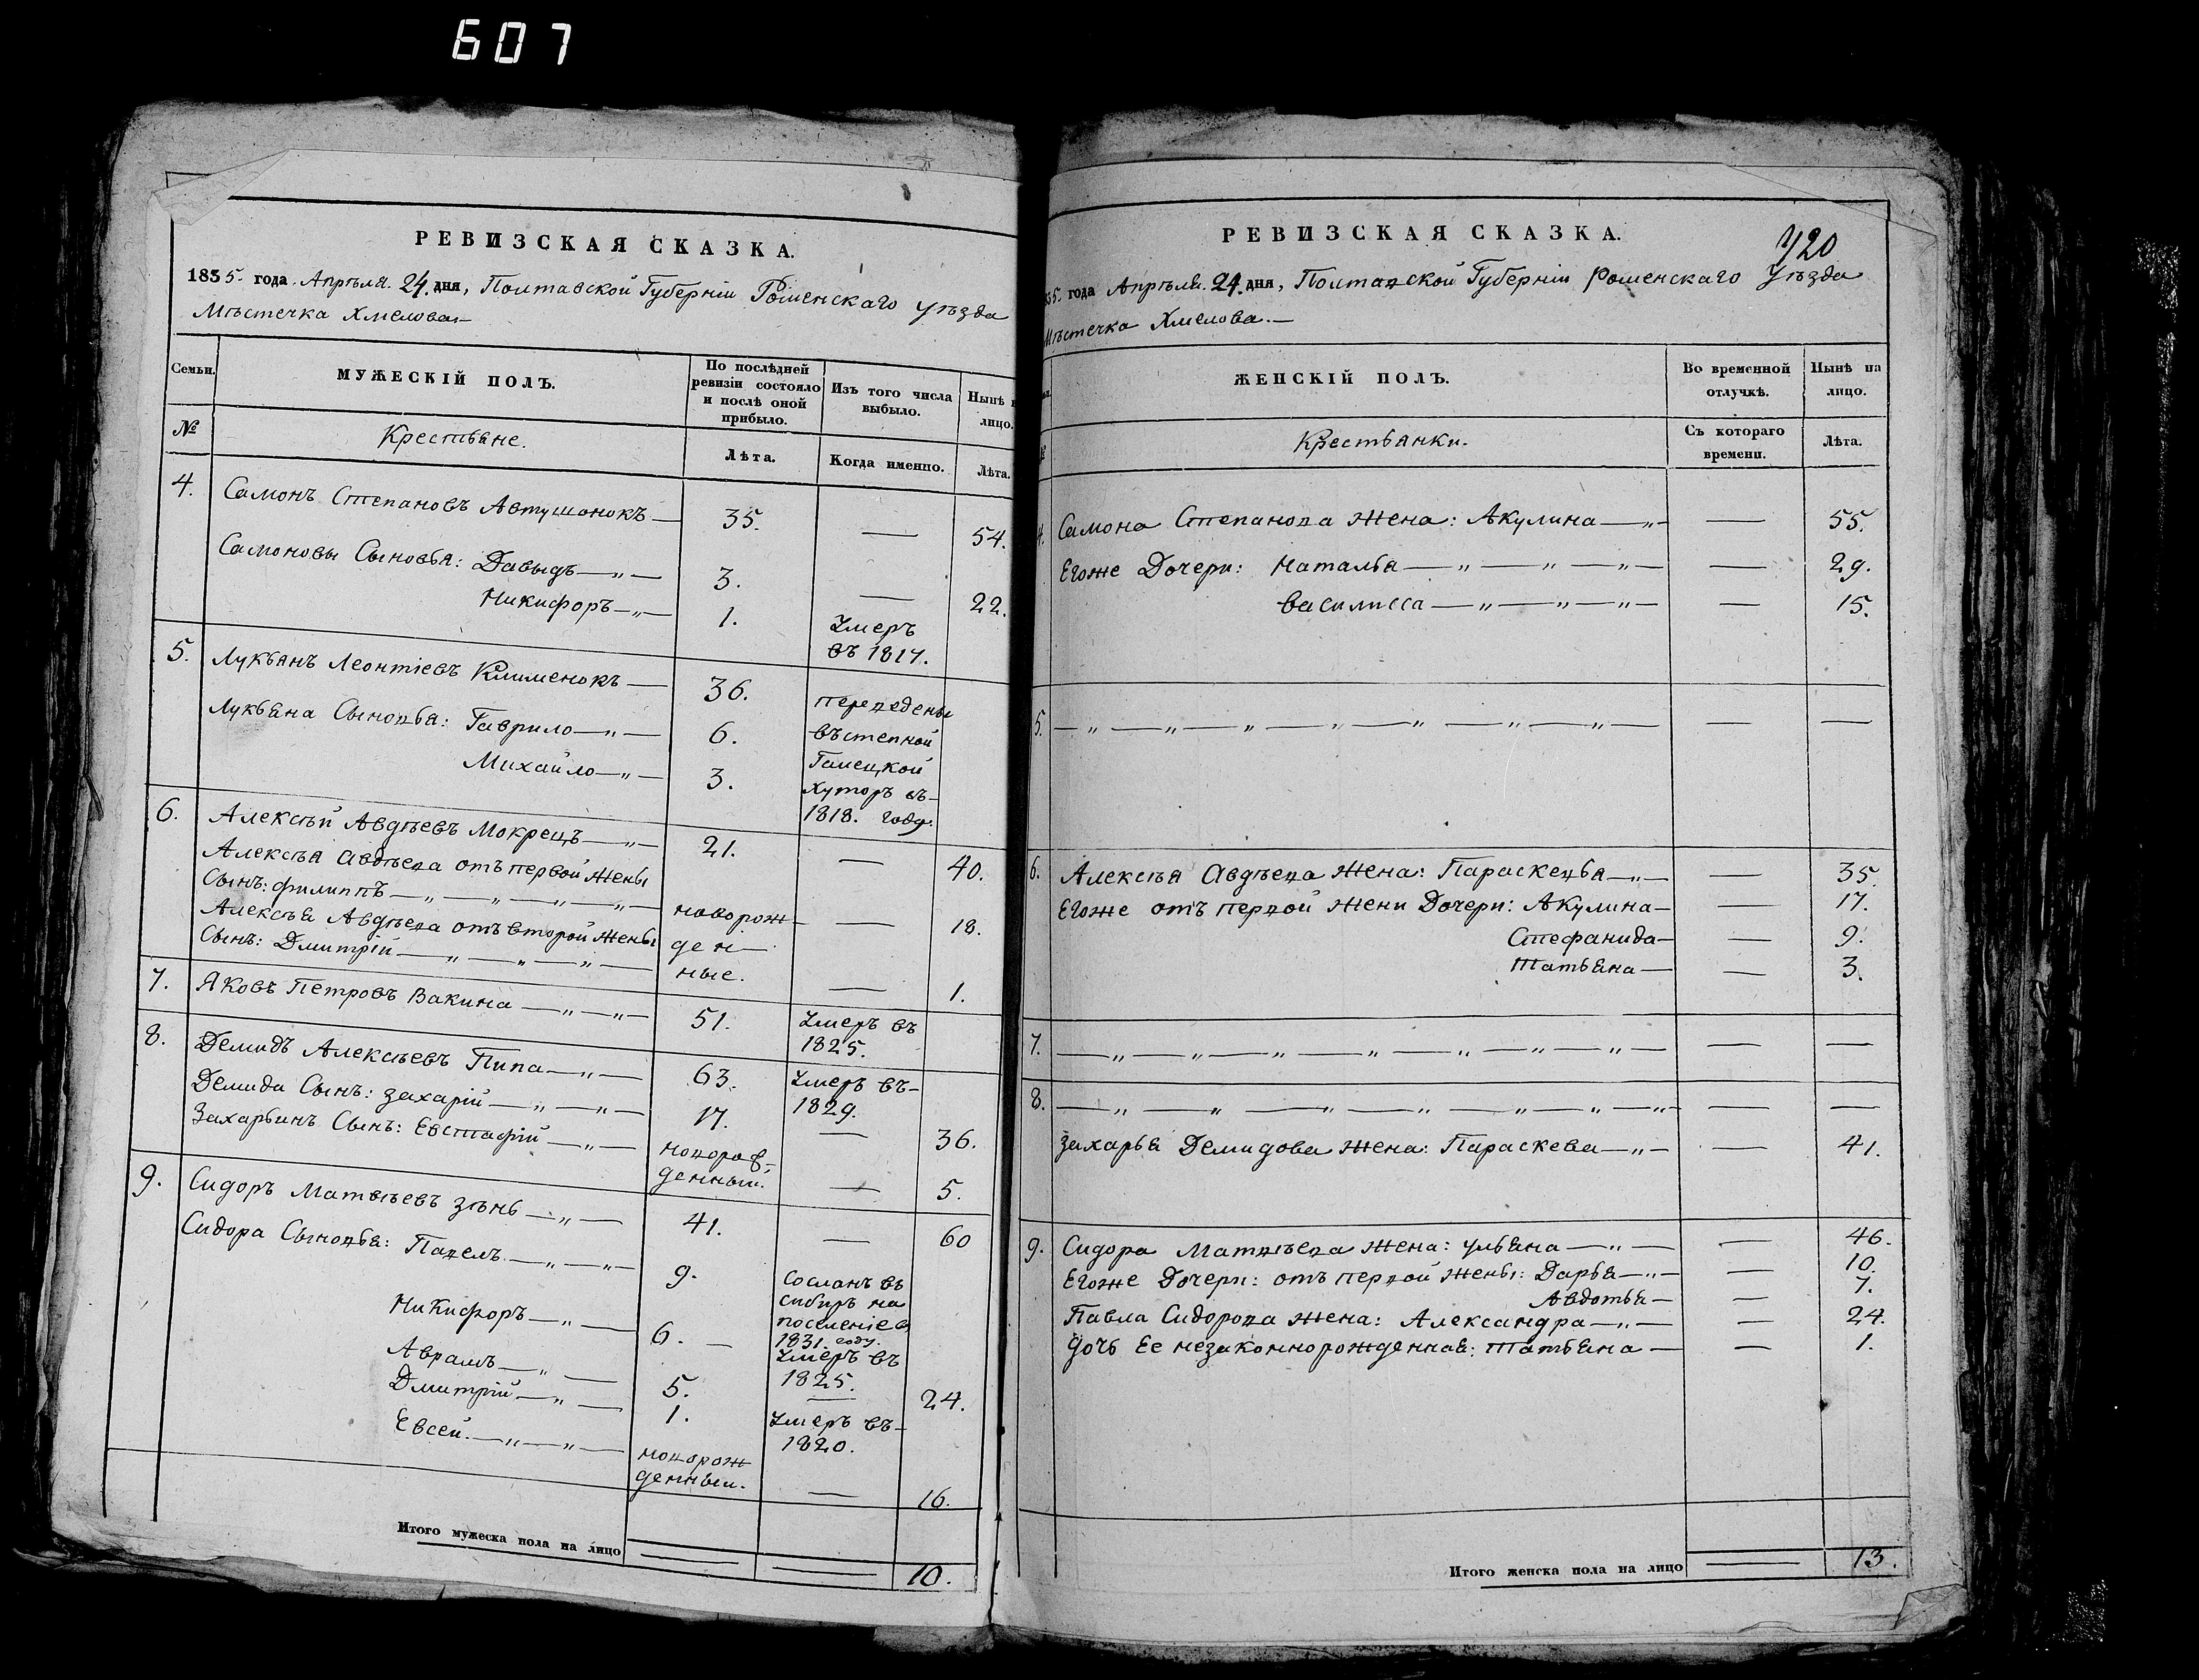 607
РЕВИЗСКАЯ СКАЗКА.
1835. года. Апрѣля. 24. дня, Полтавской Губерніи Роменскаго уѣзда
Мѣстечка Хмелова.—
Семьи.
МУЖЕСКІЙ ПОЛЪ.
По послѣдней ревизіи состояло и послѣ оной прибыло.
Изъ того числа выбыло.
Нынѣ н лицо.
№
Крестьяне.
Лѣта.
Когда именно.
Лѣта.
4. Самонъ Степановъ Автушонокъ — 35. — 54.
Самоновы Сыновья: Давыдъ — „ — 3. — 22.
Никифоръ — „ — 1. Умеръ въ 1817.
5. Лукьянъ Леонтіевъ Клименокъ — 36. переведены
Лукьяна Сыновья: Гаврило — „ — 6. въ степной
Михайло — „ — 3. Галецкой
Хуторъ въ —
1818. году.
6. Алексѣй Авдѣевъ Мокрецъ — „ — 21. — 40.
Алексѣя Авдѣева отъ первой жены
Сынъ: Филиппъ — „ — „ — „ — „ — новорож — 18.
Алексѣя Авдѣева отъ второй жены ден —
Сынъ: Дмитрій — „ — „ — „ — ные. — 1.
7. Яковъ Петровъ Вакина — „ — „ — 51. Умеръ въ 1825.
8. Демидъ Алексѣевъ Пипа — „ — 63. Умеръ въ — 1829.
Демида Сынъ: Захарій — „ — „ — 17. — 36.
Захарьинъ Сынъ: Евстафій — „ — новорож- денный. — 5.
9. Сидоръ Матвѣевъ Зѣнь — „ — 41. — 60
Сидора Сыновья: Павелъ. — „ — „ — 9. Сосланъ въ
сибирь на
поселеніе в
1831. году.
Никифоръ — „ — 6. — Умеръ въ 1825.
Аврамъ — „ — 5. — 24.
Дмитрій — „ — 1. Умеръ въ — 1820.
Евсей. — „ — „ — новорож денный. — 16.
Итого мужеска пола на лицо 10.
РЕВИЗСКАЯ СКАЗКА.
420
35. года Апрѣля. 24. дня, Полтавской Губерніи Роменскаго Уѣзда
Мѣстечка Хмелова. —
ЖЕНСКІЙ ПОЛЪ.
Во временной отлучкѣ.
Нынѣ на лицо.
Крестьянки.
Съ котораго времени.
Лѣта.
4. Самона Степанова жена: Акулина — „ — — 55.
Егоже Дочери: Наталья — „ — „ — „ — — 29.
Василисса — „ — „ — „ — — 15.
5. — „ — „ — „ — „ — „ — „ — „ — — —
6. Алексѣя Авдѣева жена: Параскевья — „ — — 35.
Егоже отъ первой жени Дочери: Акулина — — 17.
Стефанида — — 9.
Татьяна — — 3.
7. — „ — „ — „ — „ — „ — „ — „ — — —
8. — „ — „ — „ — „ — „ — „ — „ — — —
Захарья Демидова жена: Параскева — „ — — 41.
9. Сидора Матвѣева жена: Ульяна — „ — — 46.
Егоже Дочери: отъ первой жены: Дарья — „ — — 10.
Авдотья — — 7.
Павла Сидорова жена: Александра — „ — — 24.
Дочь Ее незаконнорожденная: Татьяна — — 1.
Итого женска пола на лицо 13.